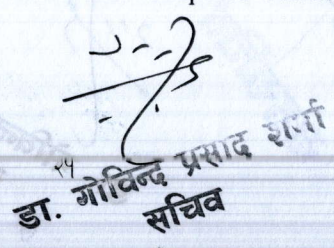 २५
डा. गोविन्द प्रसाद शर्मा
सचिव